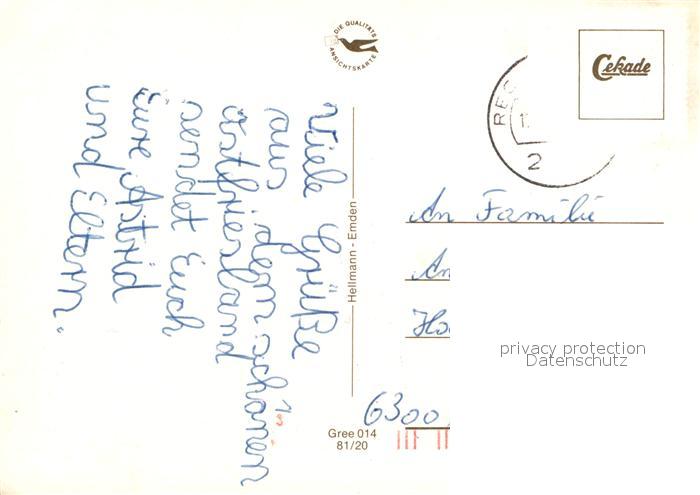 Viele Grüße
aus dem schönen
Ostfriesland
sendet Euch
Eure Astrid
und Eltern.
DIE QUALITÄTS
ANSICHTSKARTE
Hellmann - Emden
Gree 014
81/20
Cekade
2
An Familie
An
6300
privacy protection
Datenschutz